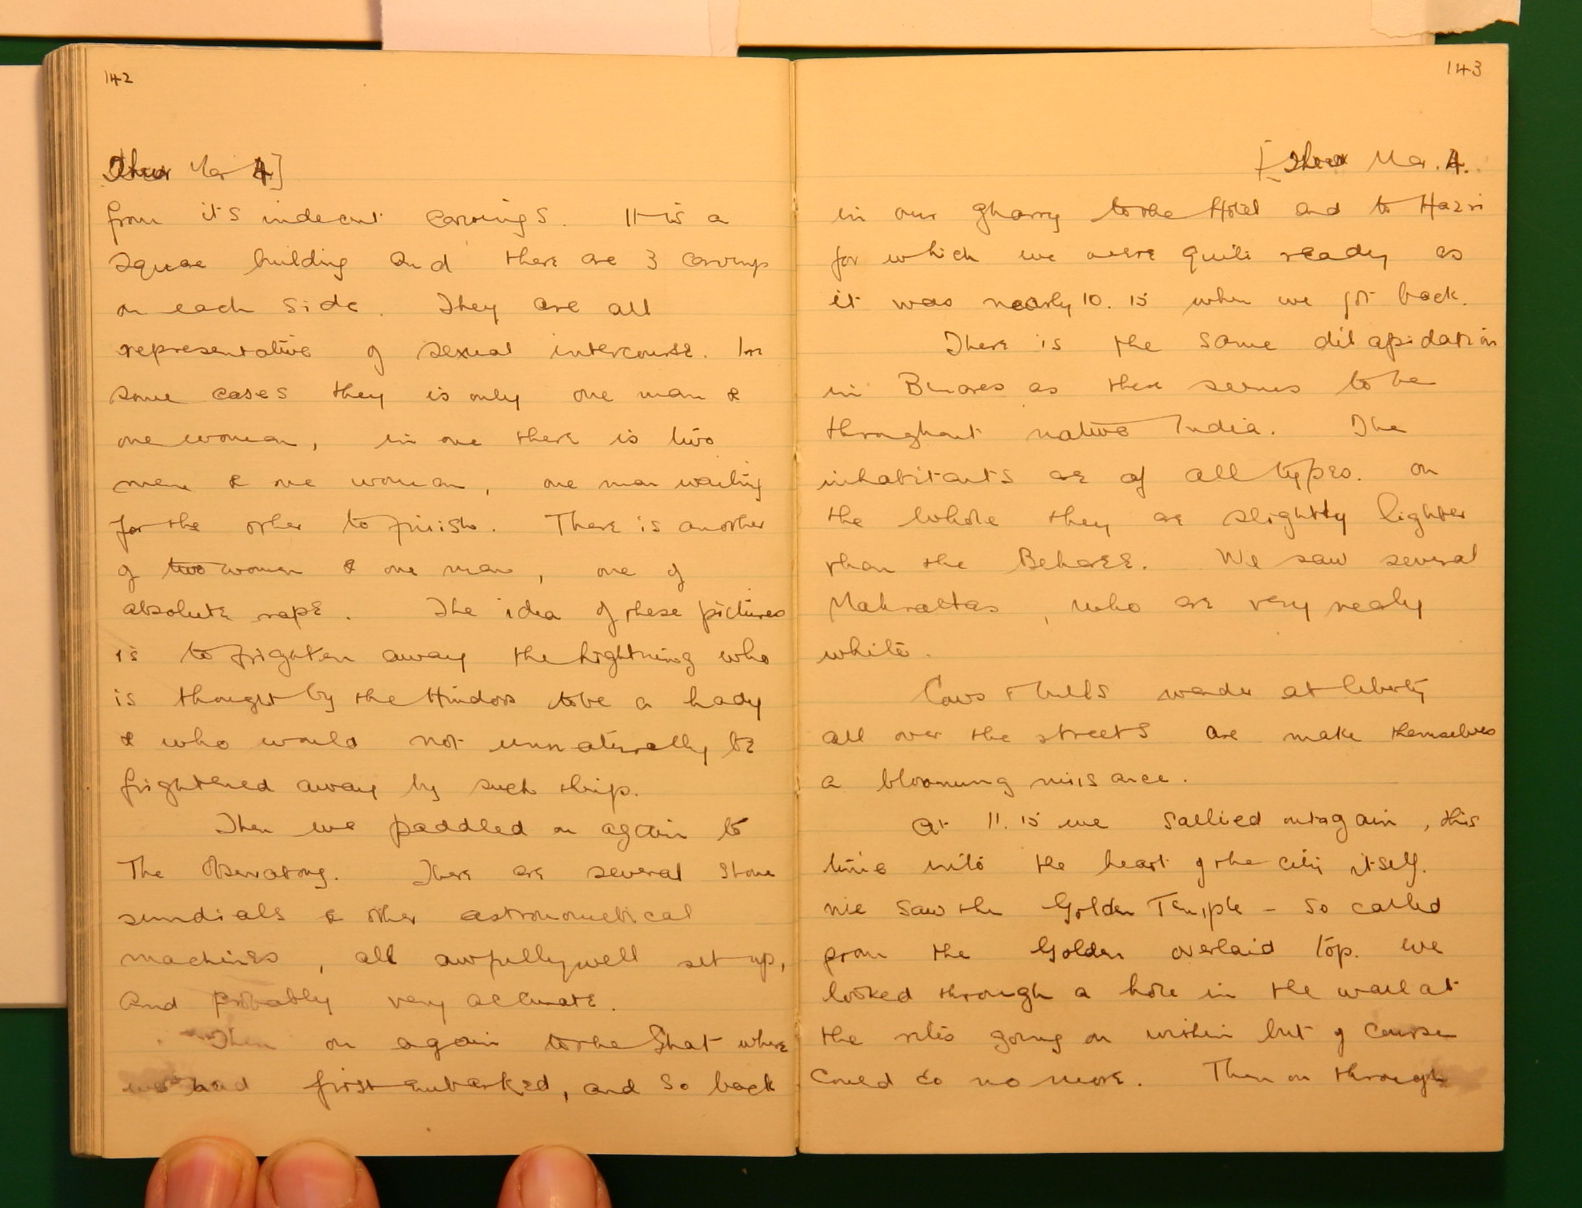 142
Thur Mar 4]
from its indecent carvings. It is a
square building and there are 3 carvings
on each side. They are all
representative of sexual intercourse. In
some cases they is only one man &
one woman, in one there is two
men & one woman, one man waiting
for the other to finish. There is another
of two women & one man, one of
absolute rape. The idea of these pictures
is to frighten away the lightning who
is thought by the Hindoos to be a lady
& who would not unnaturally be
frightened away by such things.
Then we paddled on again to
The Observatory. There are several stone
sundials & other astronomical
machines, all awfully well set up,
and probably very accurate.
Then on again to the Ghat where
we had first embarked, and so back
143
[Thur Mar. 4.
in our gharry to the Hotel and to Hazri
for which we were quite ready as
it was nearly 10.15 when we got back.
There is the same dilapidation
in Benares as there seems to be
throughout native India. The
inhabitants are of all types. On
the whole they are slightly lighter
than the Beharee. We saw several
Mahrattas, who are very nearly
white.
Cows & bulls wander at liberty
all over the streets are make themselves
a blooming nuisance.
At 11.15 we sallied out again, this
time into the heart of the city itself.
We saw the Golden Temple - so called
from the Golden overlaid top. We
looked through a hole in the wall at
the rites going on within but of course
could do no more. Then on through